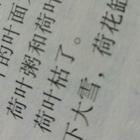 的叶面
荷叶粥和荷
荷叶枯了。
下大雪，荷花缸